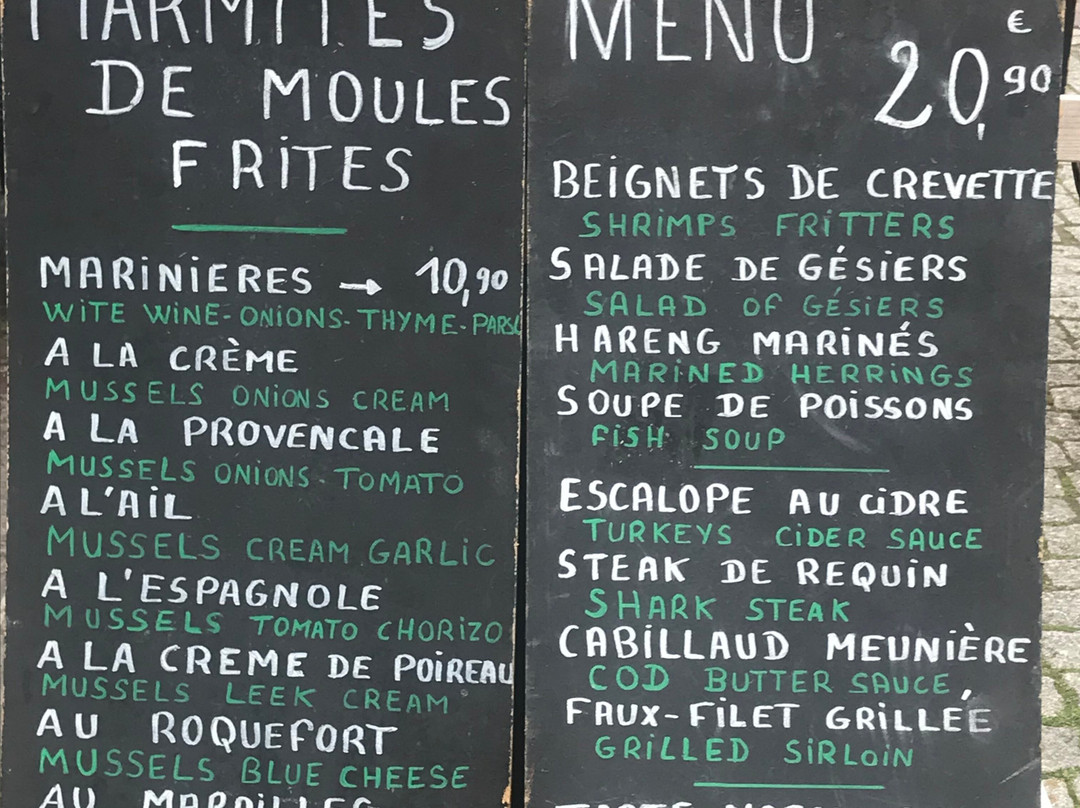 MARMITES
DE MOULES
FRITES
MARINIERES → 10,90
WITE WINE-ONIONS-THYME-PARSL
A LA CRÈME
MUSSELS ONIONS CREAM
A LA PROVENCALE
MUSSELS ONIONS-TOMATO
A L'AIL
MUSSELS CREAM GARLIC
A L'ESPAGNOLE
MUSSELS TOMATO CHORIZO
A LA CREME DE POIREAU
MUSSELS LEEK CREAM
AU ROQUEFORT
MUSSELS BLUE CHEESE
AU MAROILLES
MENU 20,90 €
BEIGNETS DE CREVETTE
SHRIMPS FRITTERS
SALADE DE GÉSIERS
SALAD OF GÉSIERS
HARENG MARINÉS
MARINED HERRINGS
SOUPE DE POISSONS
FISH SOUP
ESCALOPE AU CIDRE
TURKEYS CIDER SAUCE
STEAK DE REQUIN
SHARK STEAK
CABILLAUD MEUNIÈRE
COD BUTTER SAUCE
FAUX-FILET GRILLÉE
GRILLED SIRLOIN